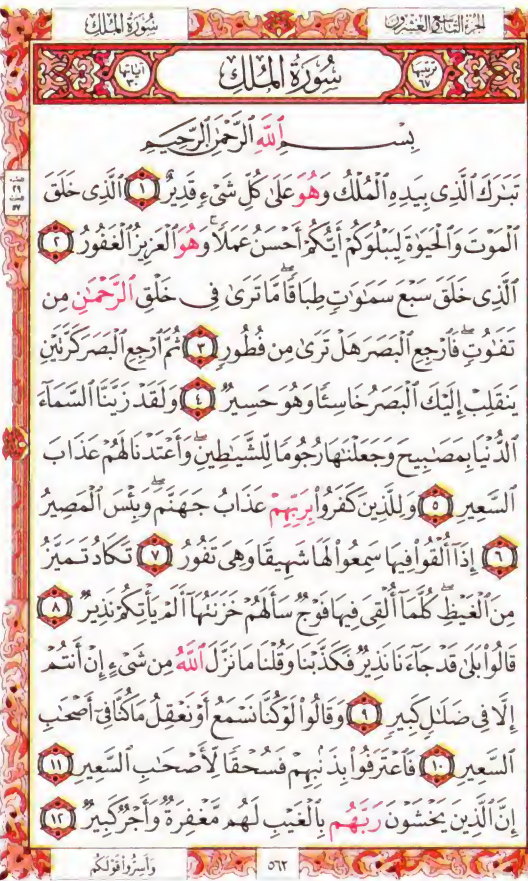 الجزء التاسع والعشرون
سُورَةُ المُلْكِ
ترتيبها ٦٧
سُورَةُ المُلْكِ
آياتها ٣٠
بِسْمِ ٱللَّهِ ٱلرَّحْمَٰنِ ٱلرَّحِيمِ
تَبَٰرَكَ ٱلَّذِى بِيَدِهِ ٱلْمُلْكُ وَهُوَ عَلَىٰ كُلِّ شَىْءٍ قَدِيرٌ ١ ٱلَّذِى خَلَقَ
ٱلْمَوْتَ وَٱلْحَيَوٰةَ لِيَبْلُوَكُمْ أَيُّكُمْ أَحْسَنُ عَمَلًا ۚ وَهُوَ ٱلْعَزِيزُ ٱلْغَفُورُ ٢
ٱلَّذِى خَلَقَ سَبْعَ سَمَٰوَٰتٍ طِبَاقًا ۖ مَّا تَرَىٰ فِى خَلْقِ ٱلرَّحْمَٰنِ مِن
تَفَٰوُتٍ ۖ فَٱرْجِعِ ٱلْبَصَرَ هَلْ تَرَىٰ مِن فُطُورٍ ٣ ثُمَّ ٱرْجِعِ ٱلْبَصَرَ كَرَّتَيْنِ
يَنقَلِبْ إِلَيْكَ ٱلْبَصَرُ خَاسِئًا وَهُوَ حَسِيرٌ ٤ وَلَقَدْ زَيَّنَّا ٱلسَّمَآءَ
ٱلدُّنْيَا بِمَصَٰبِيحَ وَجَعَلْنَٰهَا رُجُومًا لِّلشَّيَٰطِينِ ۖ وَأَعْتَدْنَا لَهُمْ عَذَابَ
ٱلسَّعِيرِ ٥ وَلِلَّذِينَ كَفَرُوا۟ بِرَبِّهِمْ عَذَابُ جَهَنَّمَ ۖ وَبِئْسَ ٱلْمَصِيرُ
٦ إِذَآ أُلْقُوا۟ فِيهَا سَمِعُوا۟ لَهَا شَهِيقًا وَهِىَ تَفُورُ ٧ تَكَادُ تَمَيَّزُ
مِنَ ٱلْغَيْظِ ۖ كُلَّمَآ أُلْقِىَ فِيهَا فَوْجٌ سَأَلَهُمْ خَزَنَتُهَآ أَلَمْ يَأْتِكُمْ نَذِيرٌ ٨
قَالُوا۟ بَلَىٰ قَدْ جَآءَنَا نَذِيرٌ فَكَذَّبْنَا وَقُلْنَا مَا نَزَّلَ ٱللَّهُ مِن شَىْءٍ إِنْ أَنتُمْ
إِلَّا فِى ضَلَٰلٍ كَبِيرٍ ٩ وَقَالُوا۟ لَوْ كُنَّا نَسْمَعُ أَوْ نَعْقِلُ مَا كُنَّا فِىٓ أَصْحَٰبِ
ٱلسَّعِيرِ ١٠ فَٱعْتَرَفُوا۟ بِذَنۢبِهِمْ فَسُحْقًا لِّأَصْحَٰبِ ٱلسَّعِيرِ ١١
إِنَّ ٱلَّذِينَ يَخْشَوْنَ رَبَّهُم بِٱلْغَيْبِ لَهُم مَّغْفِرَةٌ وَأَجْرٌ كَبِيرٌ ١٢
٥٦٢
وَأَسِرُّوا۟ قَوْلَكُمْ